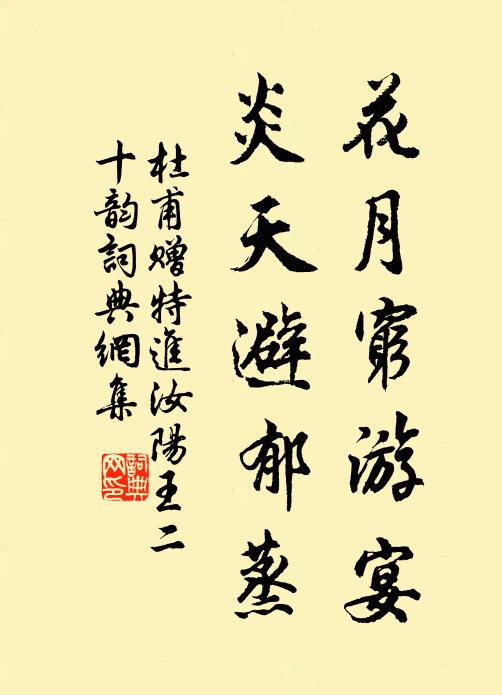 花月窮游宴
炎天避郁蒸
杜甫贈特進汝陽王二
十韵詞典網集
詞典
网印